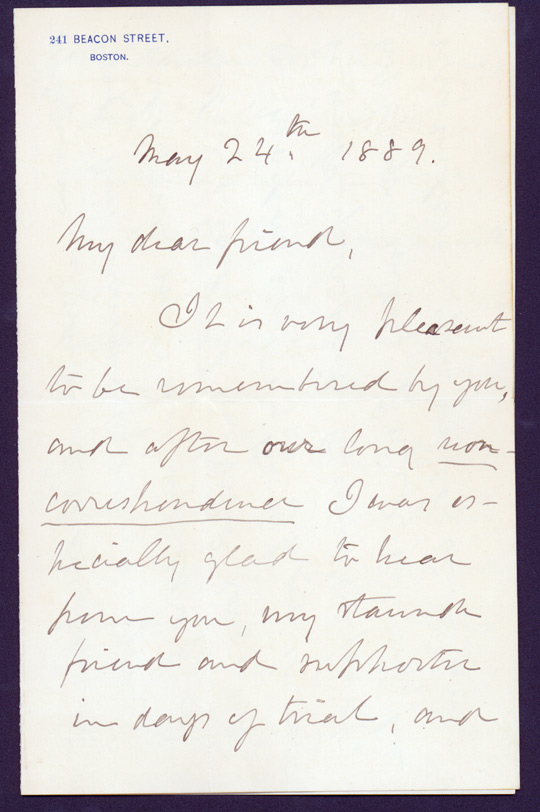 241 BEACON STREET,
BOSTON.
May 24th. 1889.
My dear friend,
It is very pleasant
to be remembered by you,
and after our long non-
correspondence I was es-
pecially glad to hear
from you, my staunch
friend and supporter
in days of trial, and